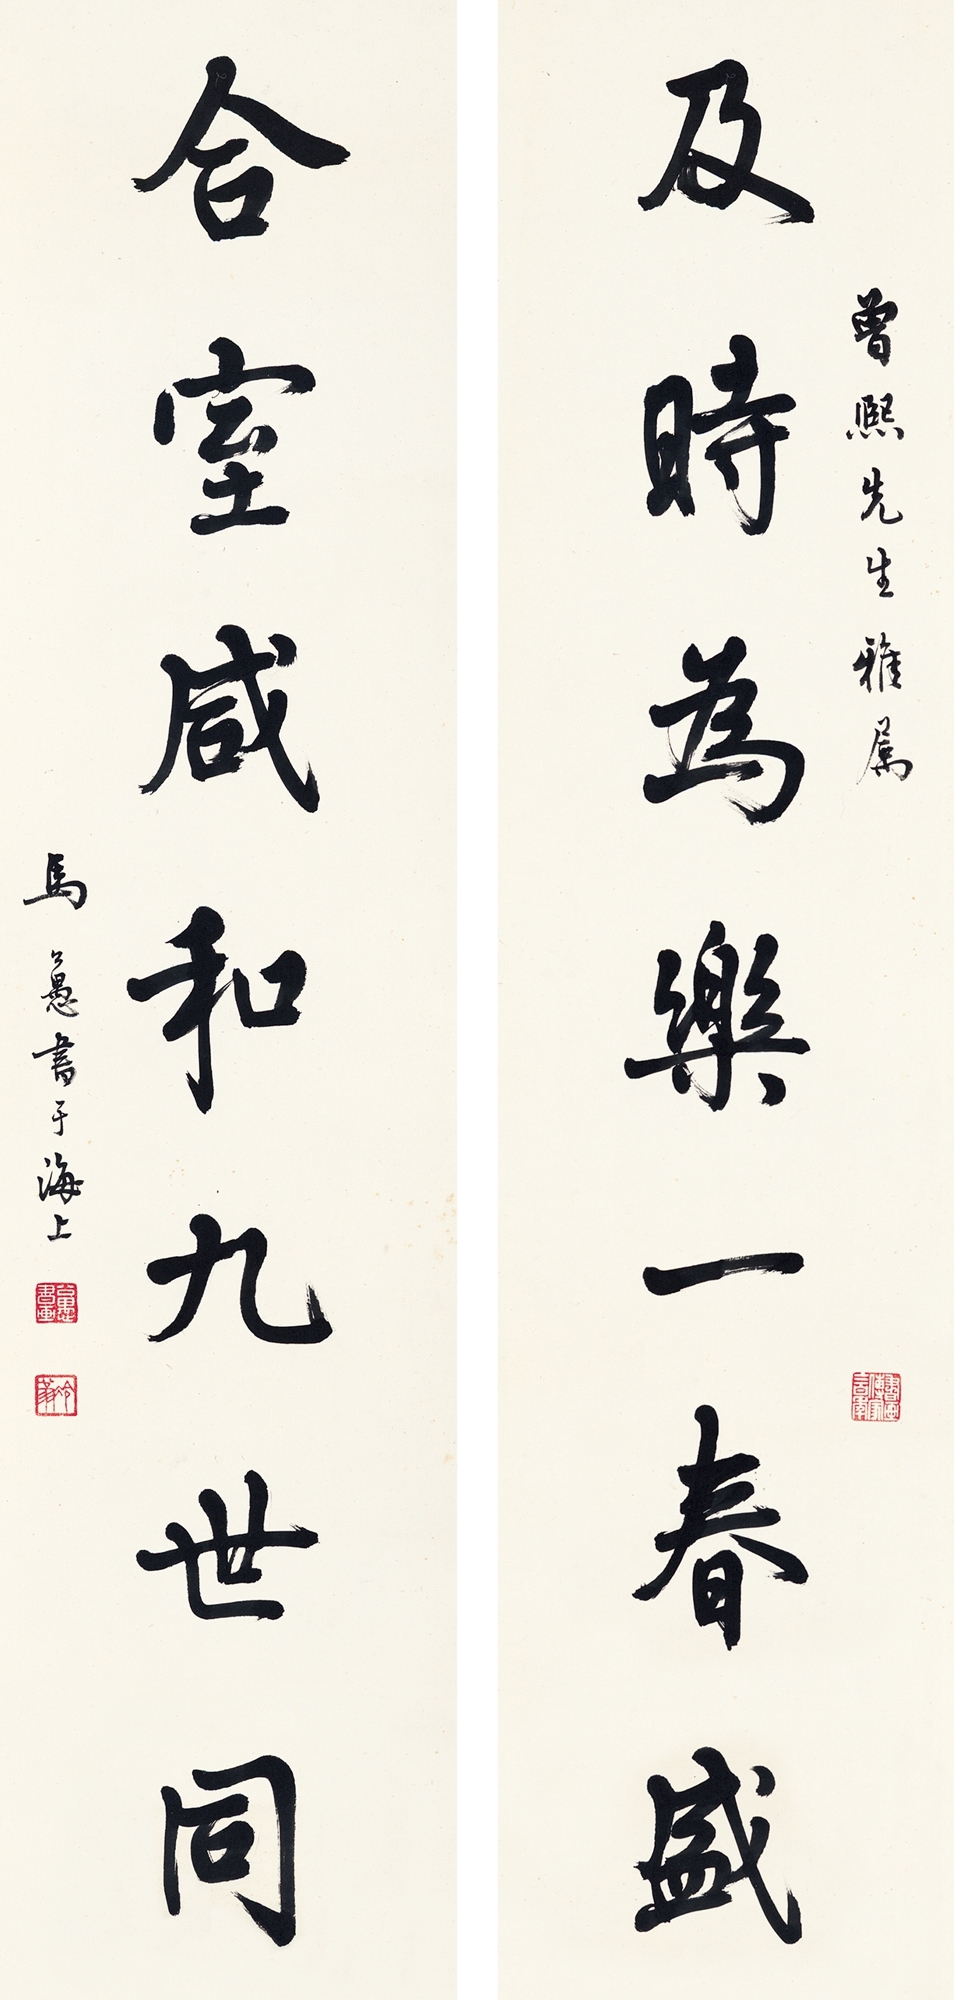 曾熙先生雅属
及時為樂一春盛
合室咸和九世同
馬公愚書于海上
公愚書畫
冷翁